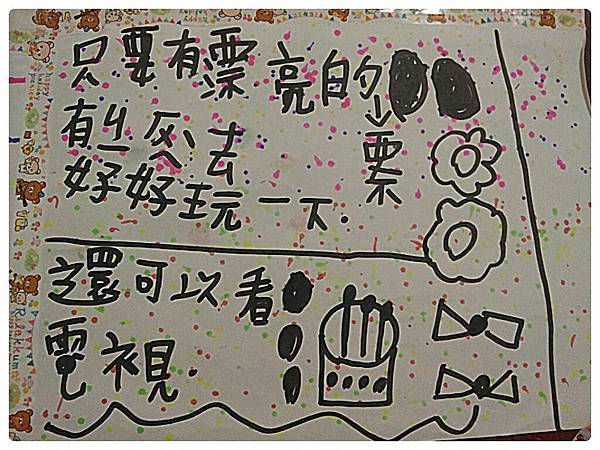 只要有漂亮的
票
有 去
好好玩一下.
之還可以看
電視.
Rilakkuma